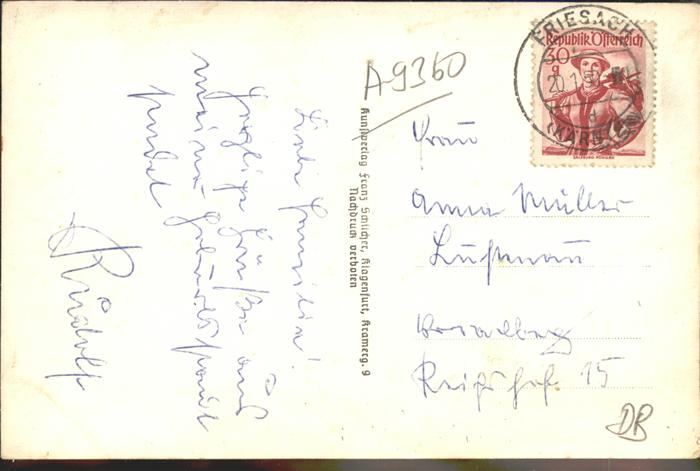 Liebe Familie!
Herzliche Grüße aus
meine
sendet
Rudolf
A-9360
Kunstverlag Franz Schilcher, Klagenfurt, Kramerg. 9
Nachdruck verboten
FRIESACH
20.1.5
(KÄRNTEN)
Republik Österreich
30
g
SALZBURG PONGAU
Frau
Anna Müller
Lustenau
Vorarlberg
Reichshof 15
DR